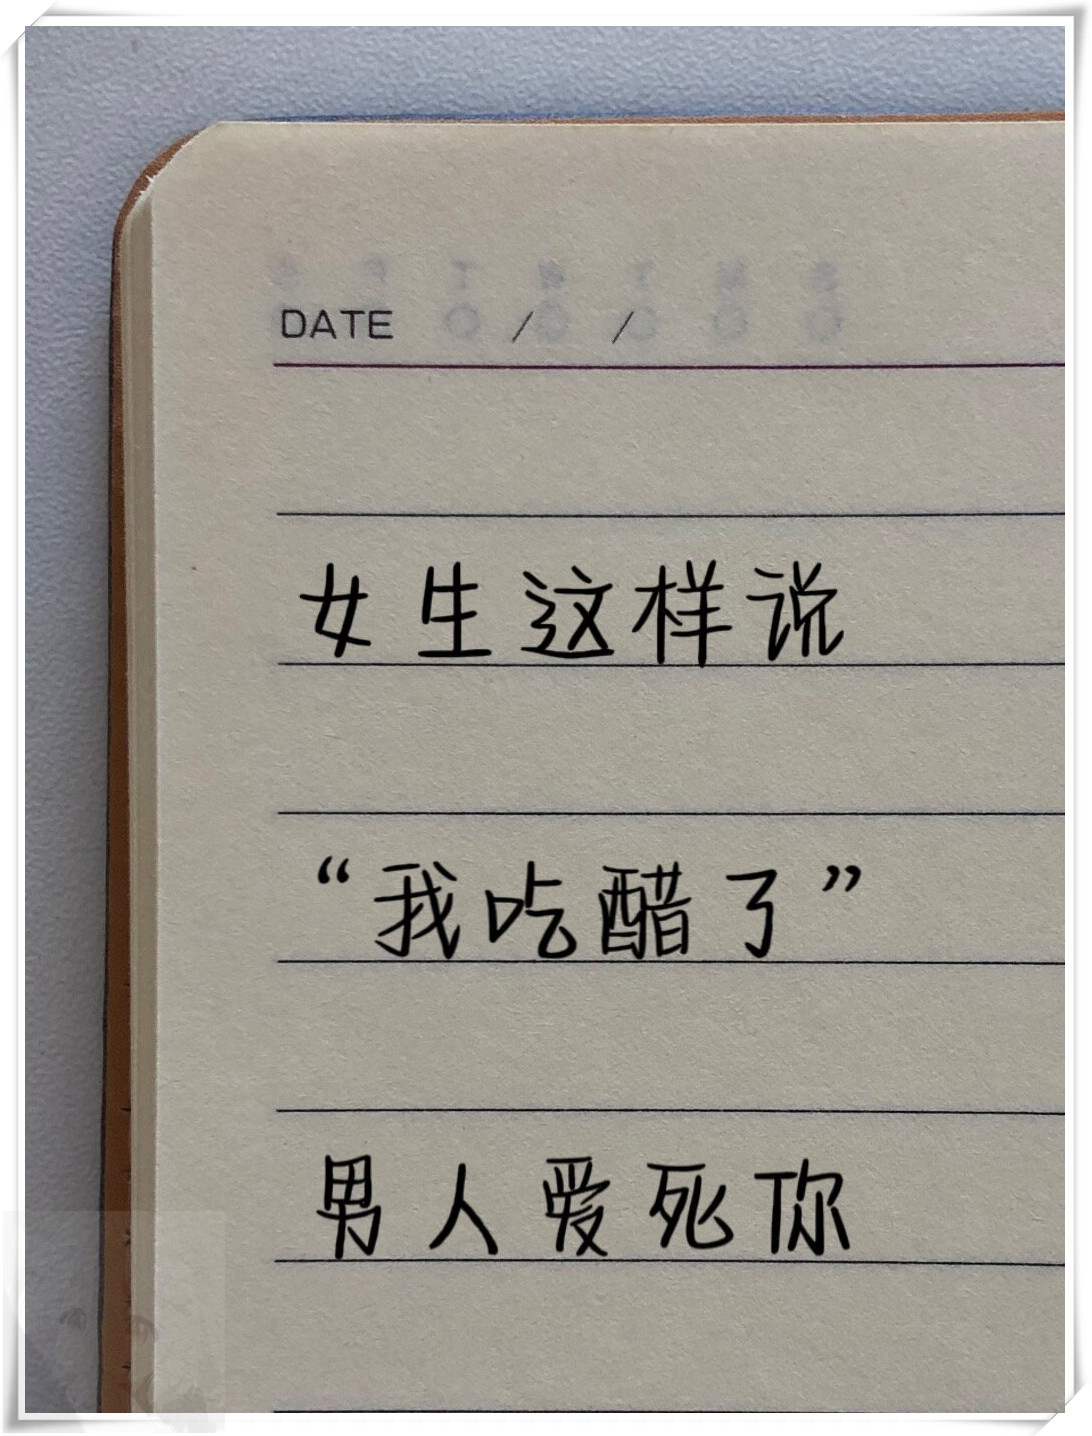 DATE / /
女生这样说
“我吃醋了”
男人爱死你